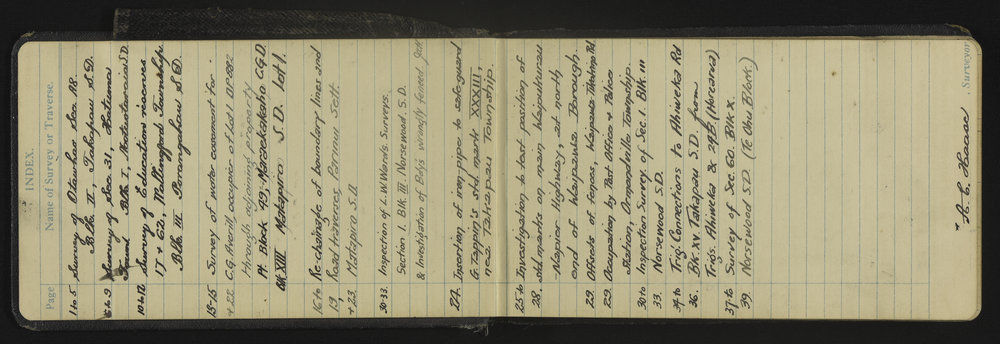 INDEX.
Page Name of Survey or Traverse.
1 to 5 Survey of Otawhao Sec. A8.
Blk. II, Takapau S.D.
6 to 9 Survey of Sec. 31, Hatuma
Blk I, Motuotaraia S.D.
10 to 12 Survey of Education reserves
17 & 62, Wallingford Township.
Blk. III Porangahau S.D.
13-15 Survey of water easement for
+ 22 C.G. Averill, occupier of Lot 1
through adjoining property
Pt. Block 49, Maraekakaho C.G.D.
Blk XIII Matapiro S.D. Lot 1.
16 to Re-chainage of boundary lines and
19, Road traverses, Sett.
+ 23. Matapiro S.D.
30-33. Inspection of L.W. Ward's Surveys.
Section 1. Blk. III Norsewood S.D.
& Investigation of Bdys wrongly fenced
24. Insertion of iron pipe to safeguard
G. Tappin's std. mark XXXIII,
nea Takapau Township.
25 to Investigation to test position of
28. std marks on main Waipukurau
- Napier Highway, at north
end of Waipawa Borough.
29. Offsets of fences, Waipawa Township Rd
29. Occupation by Post Office & Police
Station, Ormondville Township.
30 to Inspection Survey of Sec. 1. Blk. III
33. Norsewood S.D.
34 to Trig. Connections to Ahiweka Rd
36. Blk XV. Takapau S.D. from
Trigs. Ahiweka & 27B (Horeanea)
37 to Survey of Sec 60. Blk X.
39. Norsewood S.D. (Te Ohu Block.)
Surveyor